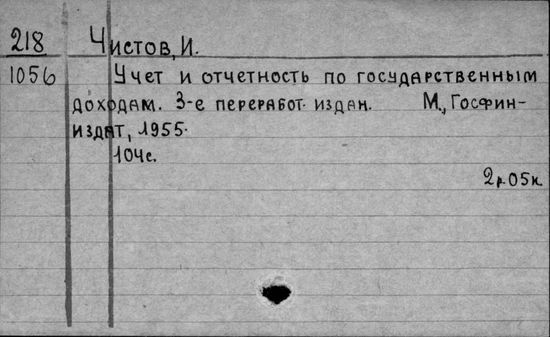 218 Чистов, И.
1056 Учет и отчетность по государственным
доходам. 3-е переработ. издан. М., Госфин-
издат, 1955.
104с.
2р.05к.